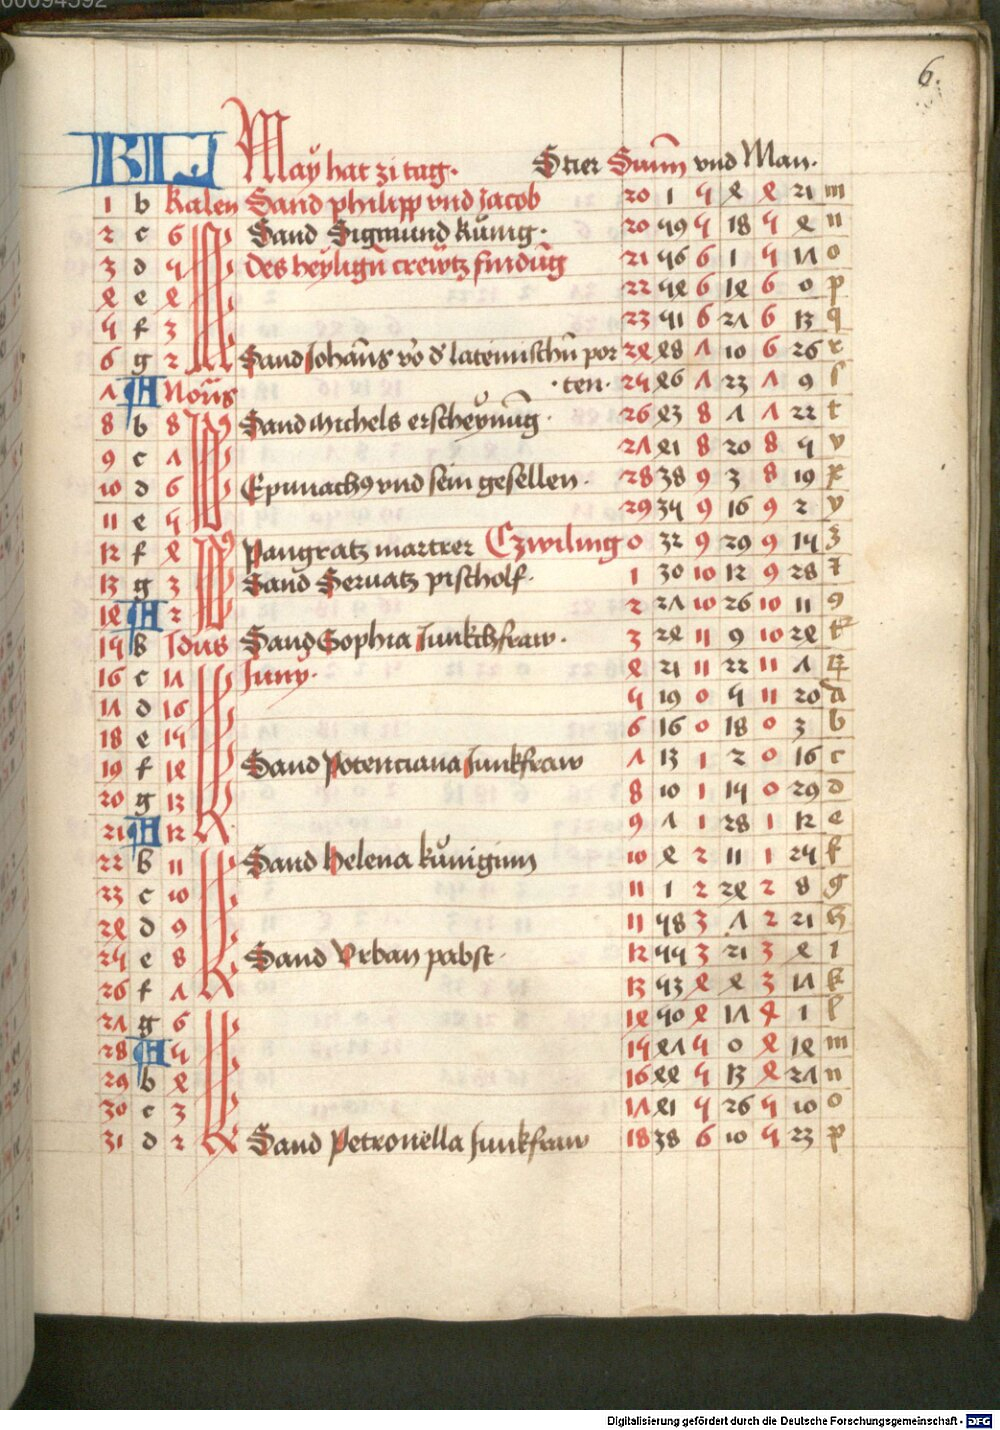 6.
KL May hat 31 tag. Stier Sunn vnd Man.
1 b Kalen Sand philipp vnd Jacob 20 1 5 4 4 21 m
2 c 6 Sand Sigmund kunig. 20 59 5 18 5 4 n
3 d 5 Des heylign crewtz findūg 21 56 6 1 5 17 o
4 e 4 22 54 6 14 6 0 p
5 f 3 23 51 6 27 6 13 q
6 g 2 Sand Johans vō d' lateinischn por 24 48 7 10 6 26 r
7 A Nonis .ten. 25 46 7 23 7 9 s
8 b 8 Sand Michels erscheynūg. 26 43 8 7 7 22 t
9 c 7 27 41 8 20 8 5 v
10 d 6 Epimachꝰ vnd sein gesellen. 28 38 9 3 8 19 x
11 e 5 29 35 9 16 9 2 y
12 f 4 Pangratz martrer Czwiling 0 32 9 29 9 15 z
13 g 3 Sand Seruatz pischolf. 1 30 10 12 9 28 7
14 A 2 2 27 10 26 10 11 9
15 b Idus Sand Sophia Junkchfraw. 3 24 11 9 10 24
16 c 17 Juny. 4 21 11 22 11 7
17 d 16 5 19 0 5 11 20 a
18 e 15 6 16 0 18 0 3 b
19 f 14 Sand Potenciana Junkfraw 7 13 1 2 0 16 c
20 g 13 8 10 1 15 0 29 d
21 A 12 9 7 1 28 1 12 e
22 b 11 Sand Helena kuniginn 10 4 2 11 1 25 f
23 c 10 11 1 2 24 2 8 g
24 d 9 11 58 3 7 2 21 h
25 e 8 Sand Vrban pabst. 12 55 3 21 3 4 i
26 f 7 13 53 4 4 3 17 k
27 g 6 14 50 4 17 4 1 l
28 A 5 15 47 5 0 4 14 m
29 b 4 16 44 5 13 4 27 n
30 c 3 17 41 5 26 5 10 o
31 d 2 Sand Petronella Junkfraw 18 38 6 10 5 23 p
Digitalisierung gefördert durch die Deutsche Forschungsgemeinschaft - DFG